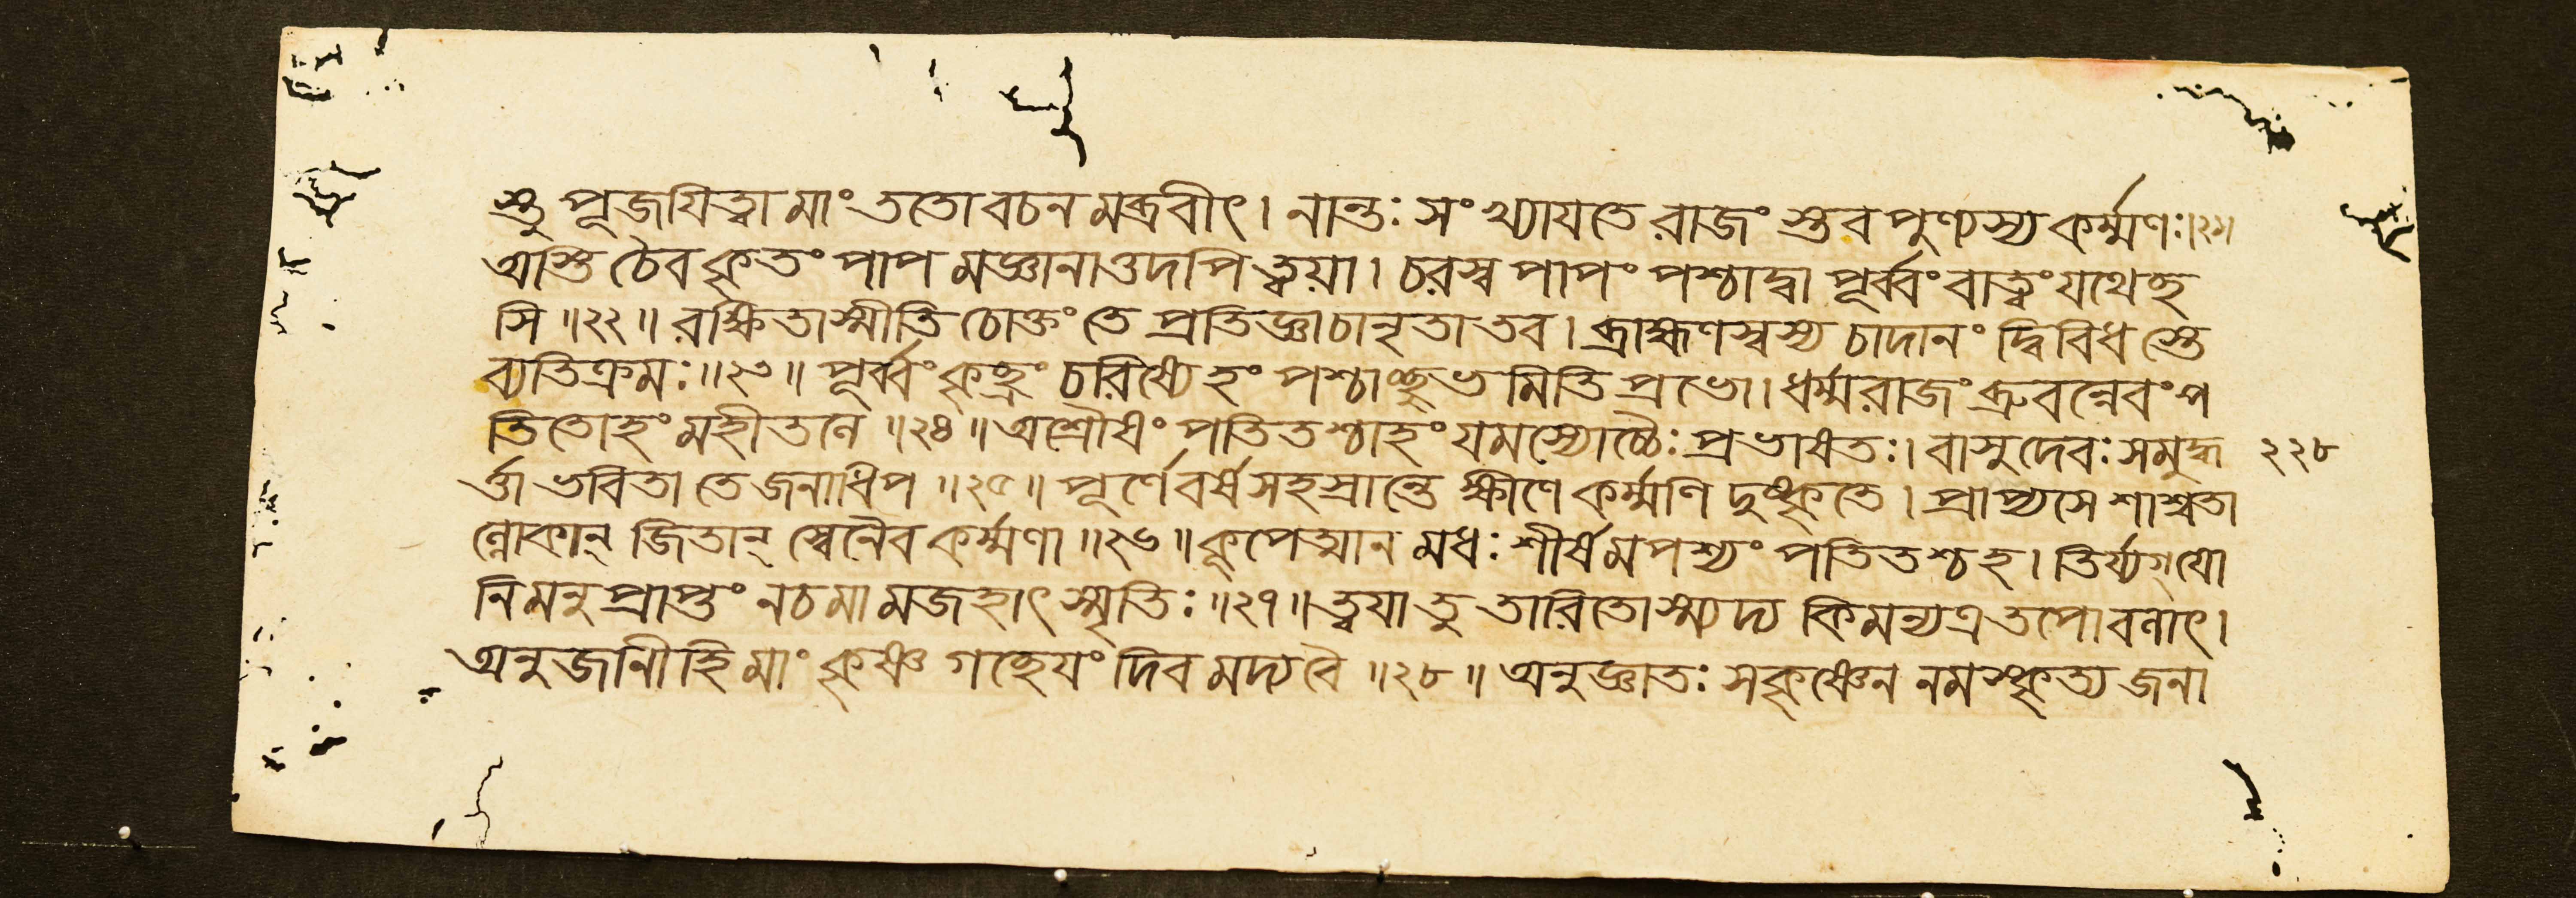 স্তু পূজযিত্বা মাং ততো বচন মব্রবীৎ। নান্তঃ সংখ্যাযতে রাজং স্তব পুণ্যস্য কর্ম্মণঃ।২১।
অস্তি চৈব কৃতং পাপ মজ্ঞানাত্তদপি ত্বয়া। চরস্ব পাপং পশ্চাদ্বা পূর্ব্বং বাত্বং যথেচ্ছ
সি॥২২॥ রক্ষিতাস্মীতি চোক্তং তে প্রতিজ্ঞাচানৃতা তব। ব্রাহ্মণস্বস্য চাদানং দ্বিবিধ স্তে
ব্যতিক্রমঃ॥২৩॥ পূর্ব্বং কৃচ্ছ্রং চরিষ্যেহং পশ্চাচ্ছুভ মিতি প্রভো। ধর্ম্মরাজং ব্রুবন্নেবং প
তিতোহং মহীতলে॥২৪॥ অশ্রৌষং পতিতশ্চাহং যমস্যোচ্চৈঃ প্রভাষতঃ। বাসুদেবঃ সমুদ্ধ ২২৮
র্ত্তা ভবিতা তে জনাধিপ॥২৫॥ পূর্ণে বর্ষ সহস্রান্তে ক্ষীণে কর্ম্মণি দুষ্কৃতে। প্রাপ্স্যসে শাশ্বতা
ল্লোকান্ জিতান্ স্বেনৈব কর্ম্মণা॥২৬॥ কূপেত্মান মধঃ শীর্ষমপশ্যং পতিতশ্চহ। তির্য্যগ্যো
নিমনুপ্রাপ্তং নচমামজহাৎ স্মৃতিঃ॥২৭॥ ত্বযা তু তারিতোস্ম্যদ্য কিমন্যত্র তপোবলাৎ।
অনুজানীহি মাং কৃষ্ণ গচ্ছেযং দিবমদ্য বৈ॥২৮॥ অনুজ্ঞাতঃ সকৃষ্ণেন নমস্কৃত্য জনা